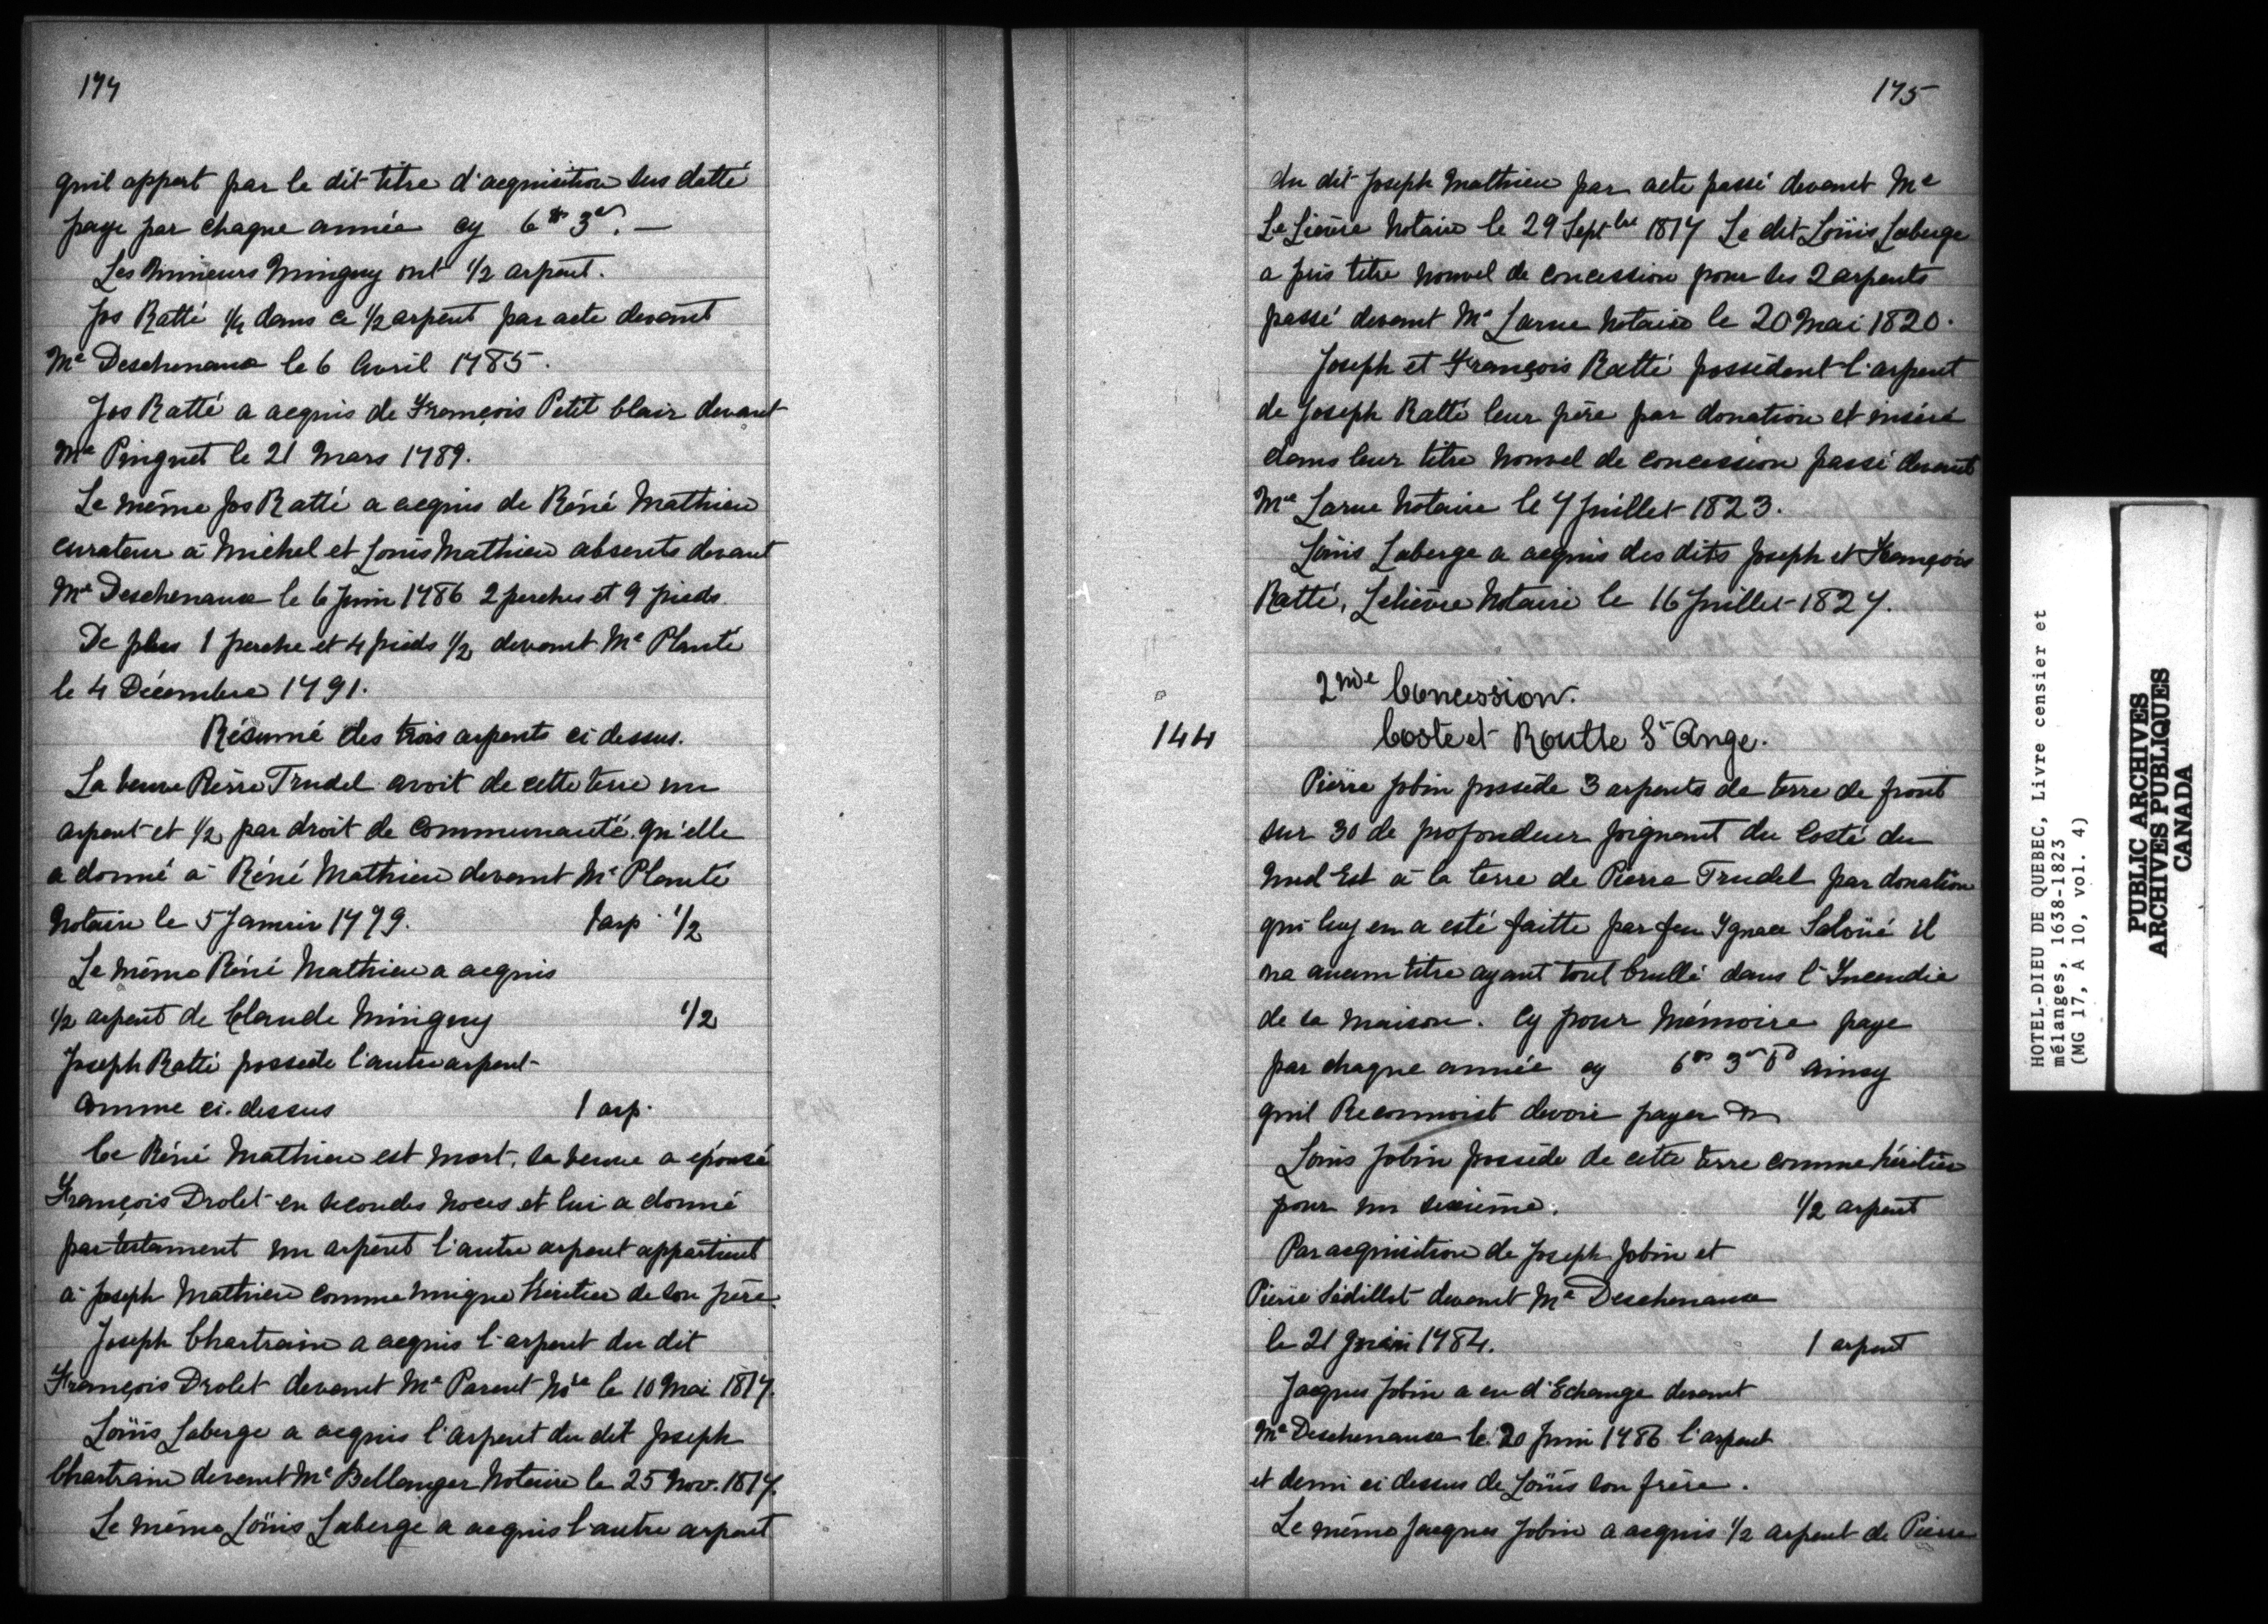 174
qu'il appert par le dit titre d'acquisition sus datté
paye par chaque année cy 6# 3s. —
Les Mineurs Minguy ont 1/2 arpent.
Jos Ratté 1/4 dans ce 1/2 arpent par acte devant
Me Deschenaux le 6 Avril 1785.
Jos Ratté a acquis de François Petit Clair devant
Me Pinguet le 21 Mars 1789.
Le même Jos Ratté a acquis de Réné Mathieu
curateur à Michel et Louis Mathieu absents devant
Me Deschenaux le 6 Juin 1786 2 perches et 9 pieds.
De plus 1 perche et 4 pieds 1/2 devant Me Planté
le 4 Décembre 1791.
Résumé des trois arpents ci dessus.
La veuve Pierre Trudel avoit de cette terre un
arpent et 1/2 par droit de Communauté qu'elle
a donné à Réné Mathieu devant Me Planté
Notaire le 5 Janvier 1779. 1 arp 1/2
Le même Réné Mathieu a acquis
1/2 arpent de Claude Minguy 1/2
Joseph Ratté possede l'autre arpent
comme ci-dessus 1 arp.
Ce Réné Mathieu est mort, sa veuve a épousé
François Drolet en secondes noces et lui a donné
par testament un arpent l'autre arpent appartient
à Joseph Mathieu comme unique héritier de son père.
Joseph Chartrain a acquis l'arpent du dit
François Drolet devant Me Parent Nore le 10 Mai 1817.
Loüis Laberge a acquis l'arpent du dit Joseph
Chartrain devant Me Bellanger Notaire le 25 Nov. 1817.
Le même Loüis Laberge a acquis l'autre arpent
175
du dit Joseph Mathieu par acte passé devant Me
Le Lièvre Notaire le 29 Septbre 1817 Le dit Loüis Laberge
a pris titre nouvel de concession pour ses 2 arpents
passé devant Me Larue Notaire le 20 Mai 1820.
Joseph et François Ratté possèdent l'arpent
de Joseph Ratté leur père par donation et inséré
dans leur titre nouvel de concession passé devant
Me Larue Notaire le 7 Juillet 1823.
Loüis Laberge a acquis des dits Joseph et François
Ratté, Lelièvre Notaire le 16 Juillet 1827.
2nde Concession.
144 Coste et Routte St Ange.
Pierre Jobin possède 3 arpents de terre de front
sur 30 de profondeur joignant du Costé du
Nud Est à la terre de Pierre Trudel par donation
qui luy en a esté faitte par feu Ignace Saloüé il
na aucun titre ayant tout brullé dans l'Incendie
de sa Maison. Cy pour Mémoire paye
par chaque année cy 6# 3s 6d ainsy
quil Reconnoist devoir payer
Louis Jobin possède de cette terre comme héritier
pour un sixième. 1/2 arpent
Par acquisition de Joseph Jobin et
Pierre Sédillot devant Me Deschenaux
le 21 Juin 1784. 1 arpent
Jacques Jobin a eu d'Echange devant
Me Deschenaux le 20 Juin 1786 l'arpent
et demi ci dessus de Loüis son frère.
Le même Jacques Jobin a acquis 1/2 arpent de Pierre
HOTEL-DIEU DE QUEBEC, Livre censier et
mélanges, 1638-1823
(MG 17, A 10, vol. 4)
PUBLIC ARCHIVES
ARCHIVES PUBLIQUES
CANADA